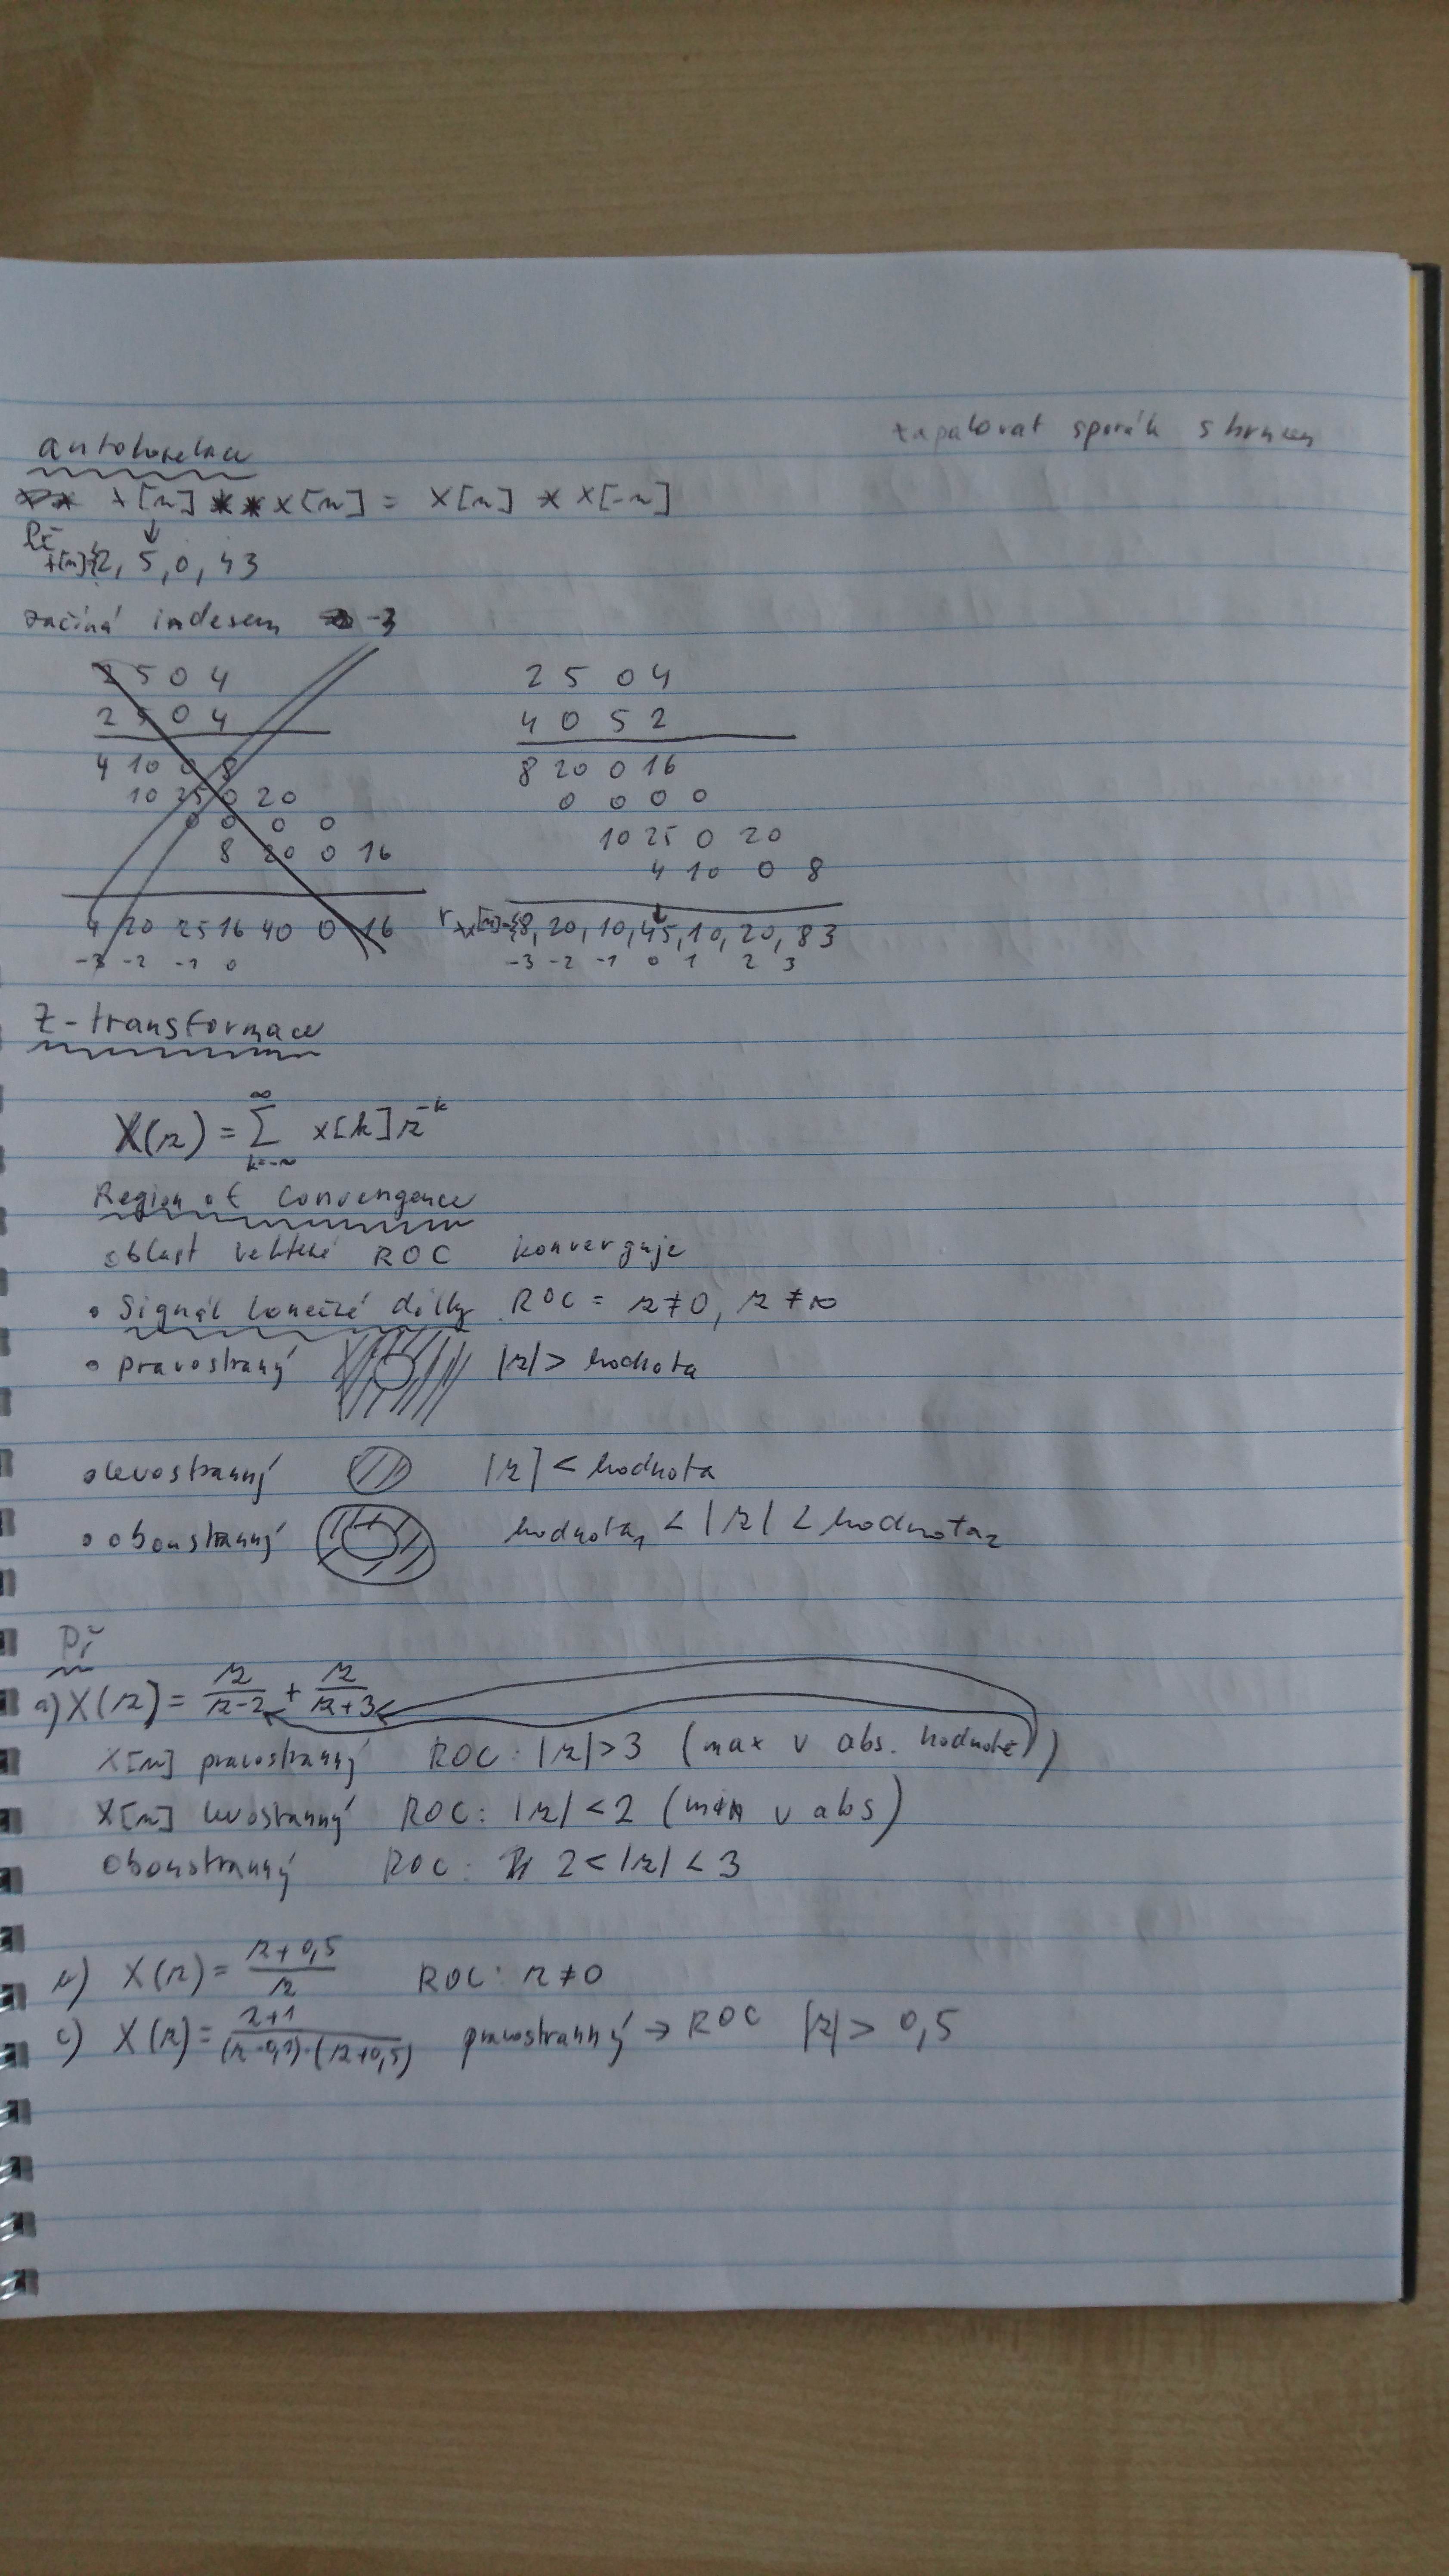 zapalovat sporák s hrncem
autokorelace
x[n] ** x[n] = x[n] * x[-n]
Př
↓
x[n]={2, 5, 0, 4}
začíná indexem -3
2 5 0 4
2 5 0 4
4 10 0 8
10 25 0 20
0 0 0 0
8 20 0 16
4 20 25 16 40 0 16
-3 -2 -1 0
2 5 0 4
4 0 5 2
8 20 0 16
0 0 0 0
10 25 0 20
4 10 0 8
↓
r xx[n]={8, 20, 10, 45, 10, 20, 8}
-3 -2 -1 0 1 2 3
Z-transformace
X(z) = ∑ x[k] z^-k
k=-∞ ∞
Region of Convergence
oblast ROC konverguje
• Signál konečné délky ROC = z≠0, z≠∞
• pravostraný |z| > hodnota
• levostranný |z| < hodnota
• oboustranný hodnota₁ < |z| < hodnota₂
Př
a) X(z) = z/(z-2) + z/(z+3)
X[n] pravostranný ROC: |z|>3 (max v abs. hodnotě)
X[n] levostranný ROC: |z| <2 (min v abs)
Oboustranný ROC: 2<|z|<3
b) X(z) = (z+0,5)/z ROC: z≠0
c) X(z) = (z+1)/((z-0,1)·(z+0,5)) pravostranný → ROC |z| > 0,5